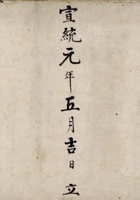 宣統元年五月吉日立